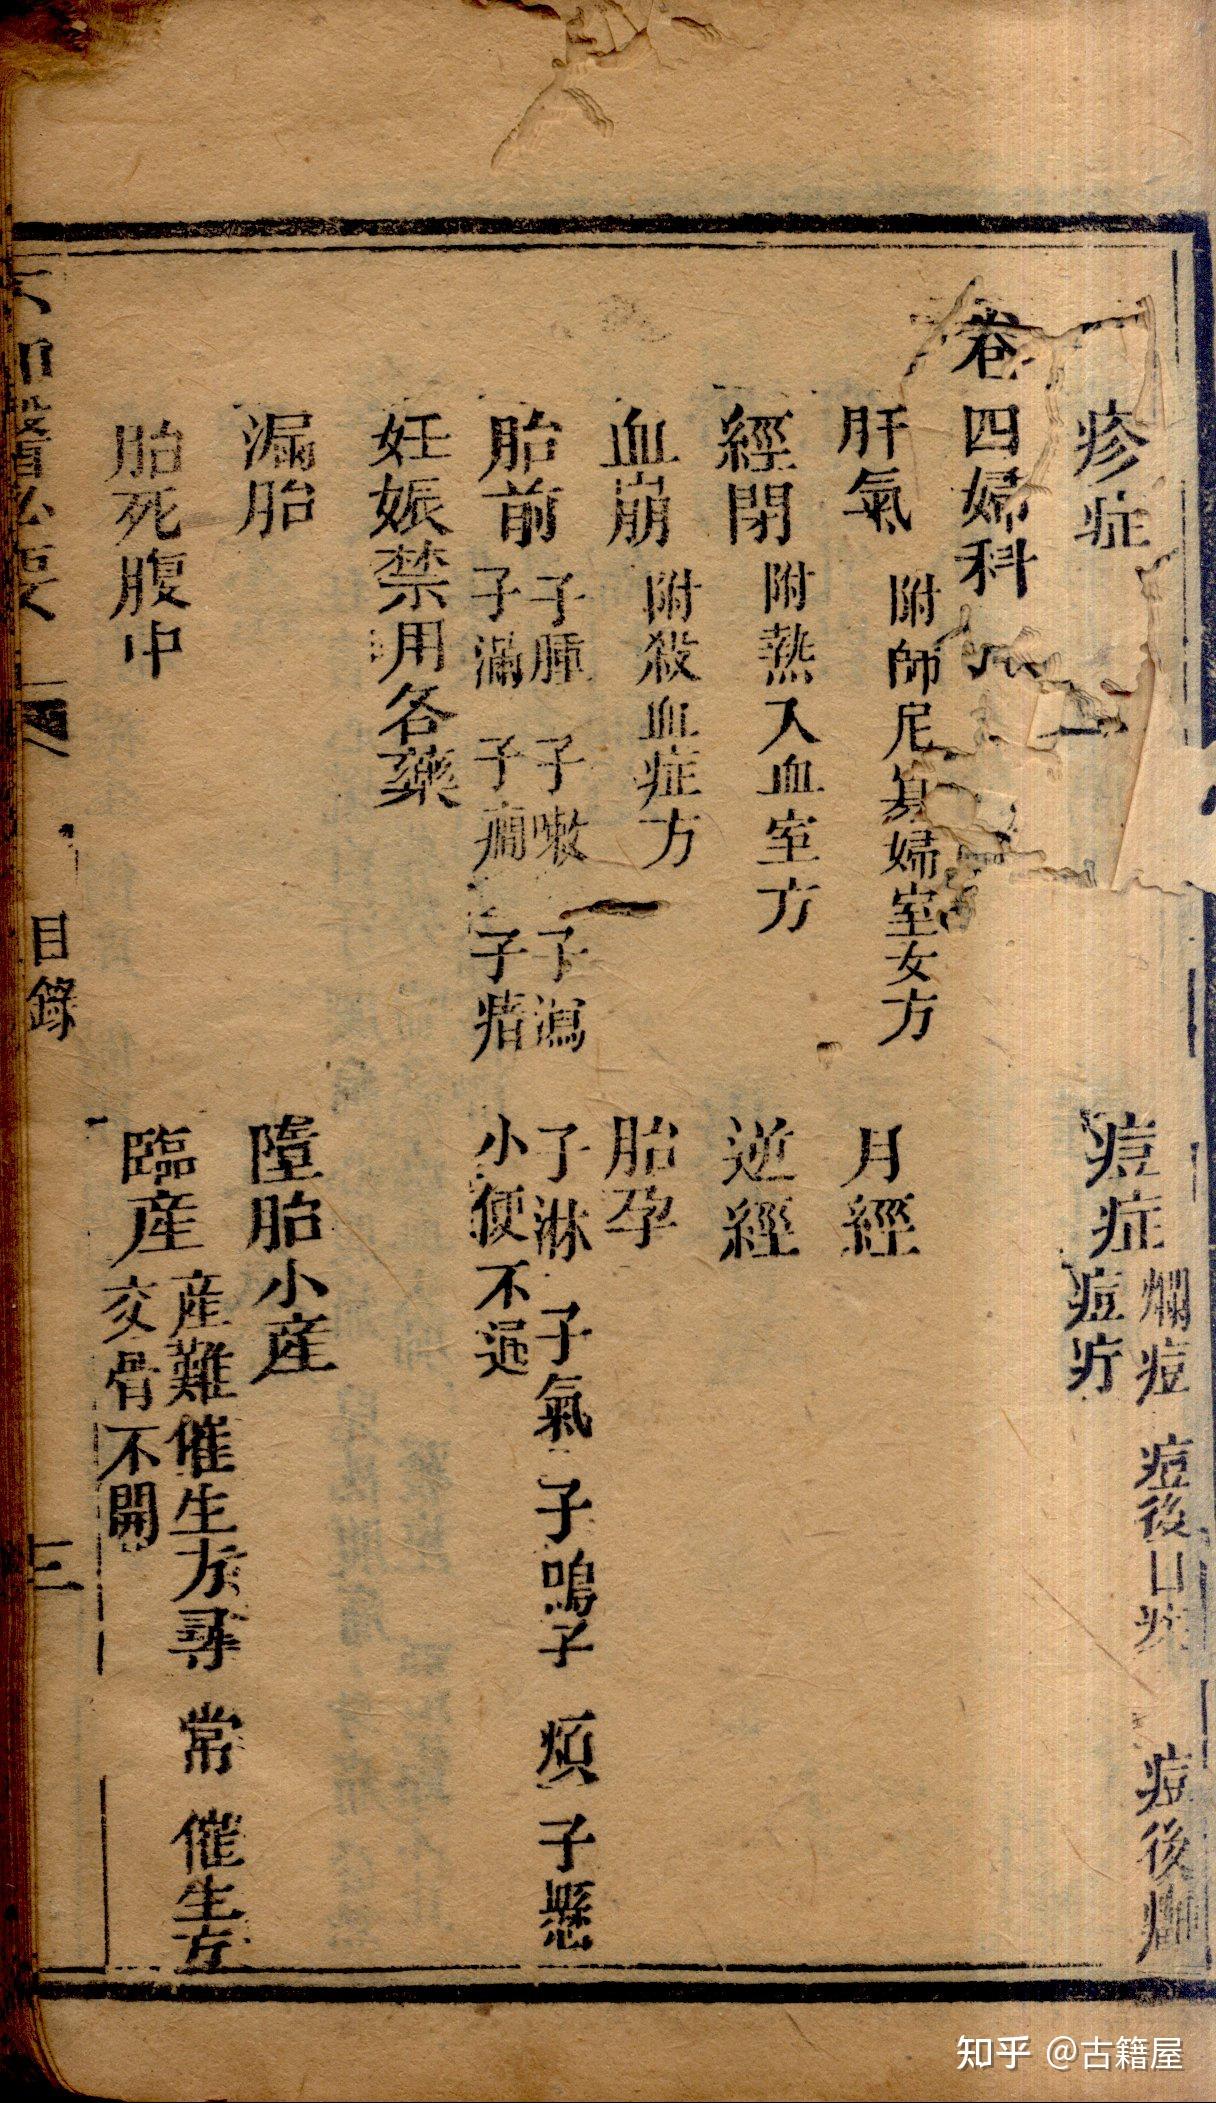 疹症
痘症 爛痘 痘後口疾 痘後
痘疔
卷四婦科
肝氣 附師尼寡婦室女方
月經
經閉 附熱入血室方
逆經
血崩 附殺血症方
胎孕
胎前 子腫 子嗽 子瀉 子淋 子氣 子鳴 子煩 子懸
子滿 子癇 子瘖 小便不通
妊娠禁用各藥
漏胎
墮胎小產
胎死腹中
臨產 產難催生方 尋常催生方
交骨不開
目錄
三
知乎 @古籍屋